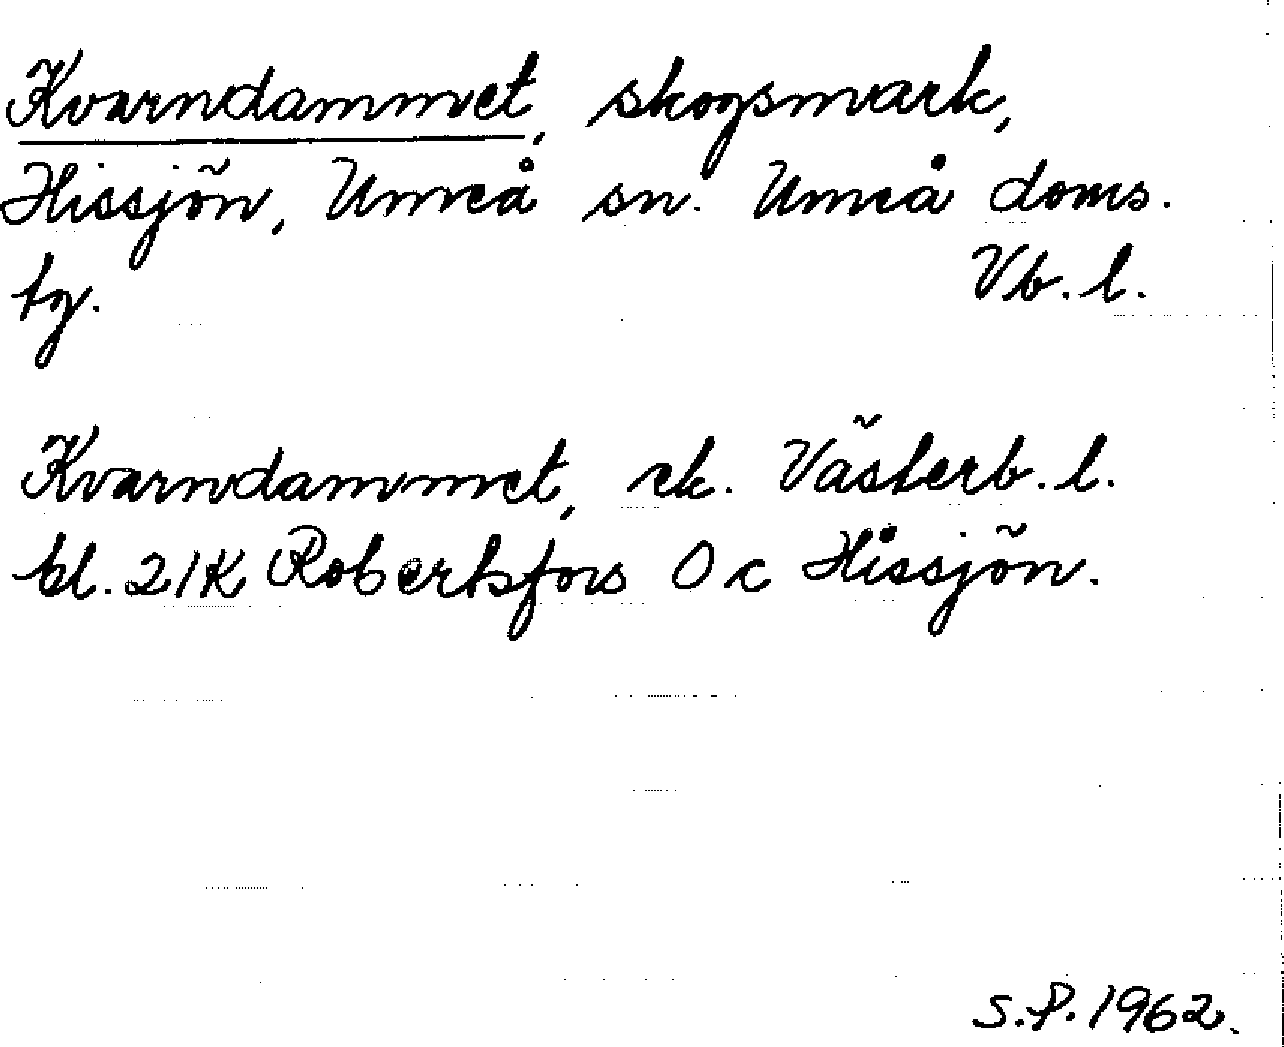 Kvarndammet, skogsmark,
Hissjön, Umeå sn. Umeå doms.
tg. Vb. l.
Kvarndammet, ek. Västerb. l.
bl. 21K Robertsfors O c Hissjön.
S.P. 1962.